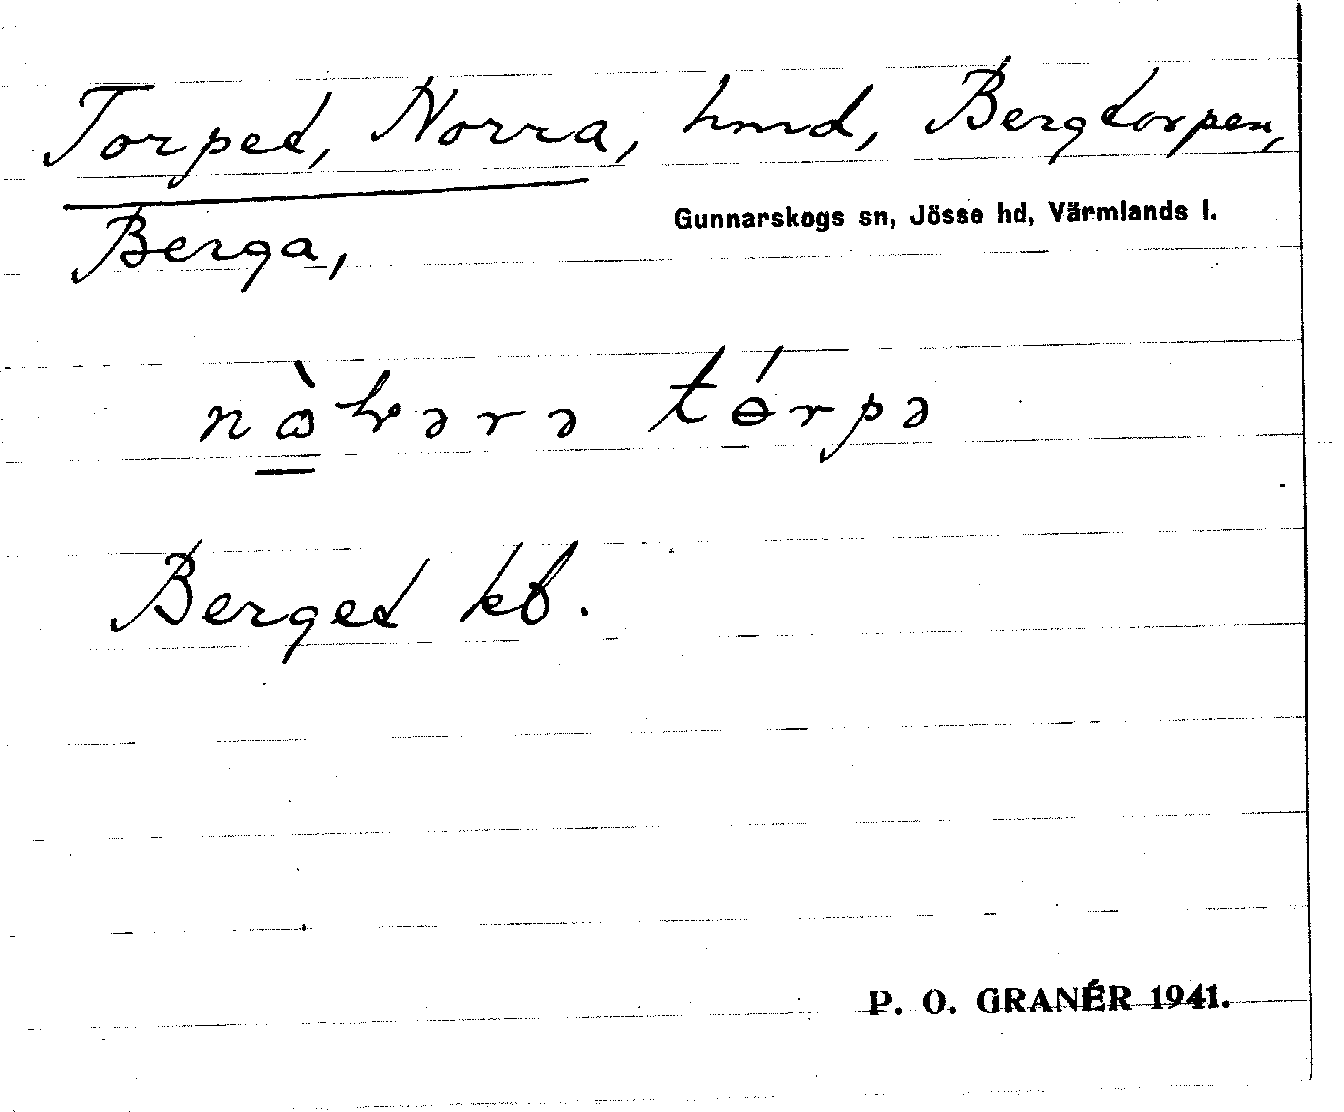 Torpet, Norra, hmd, Bergtorpen,
Gunnarskogs sn, Jösse hd, Värmlands l.
Berga,
tɵ́rpə
Berget kb.
P. O. GRANÉR 1941.